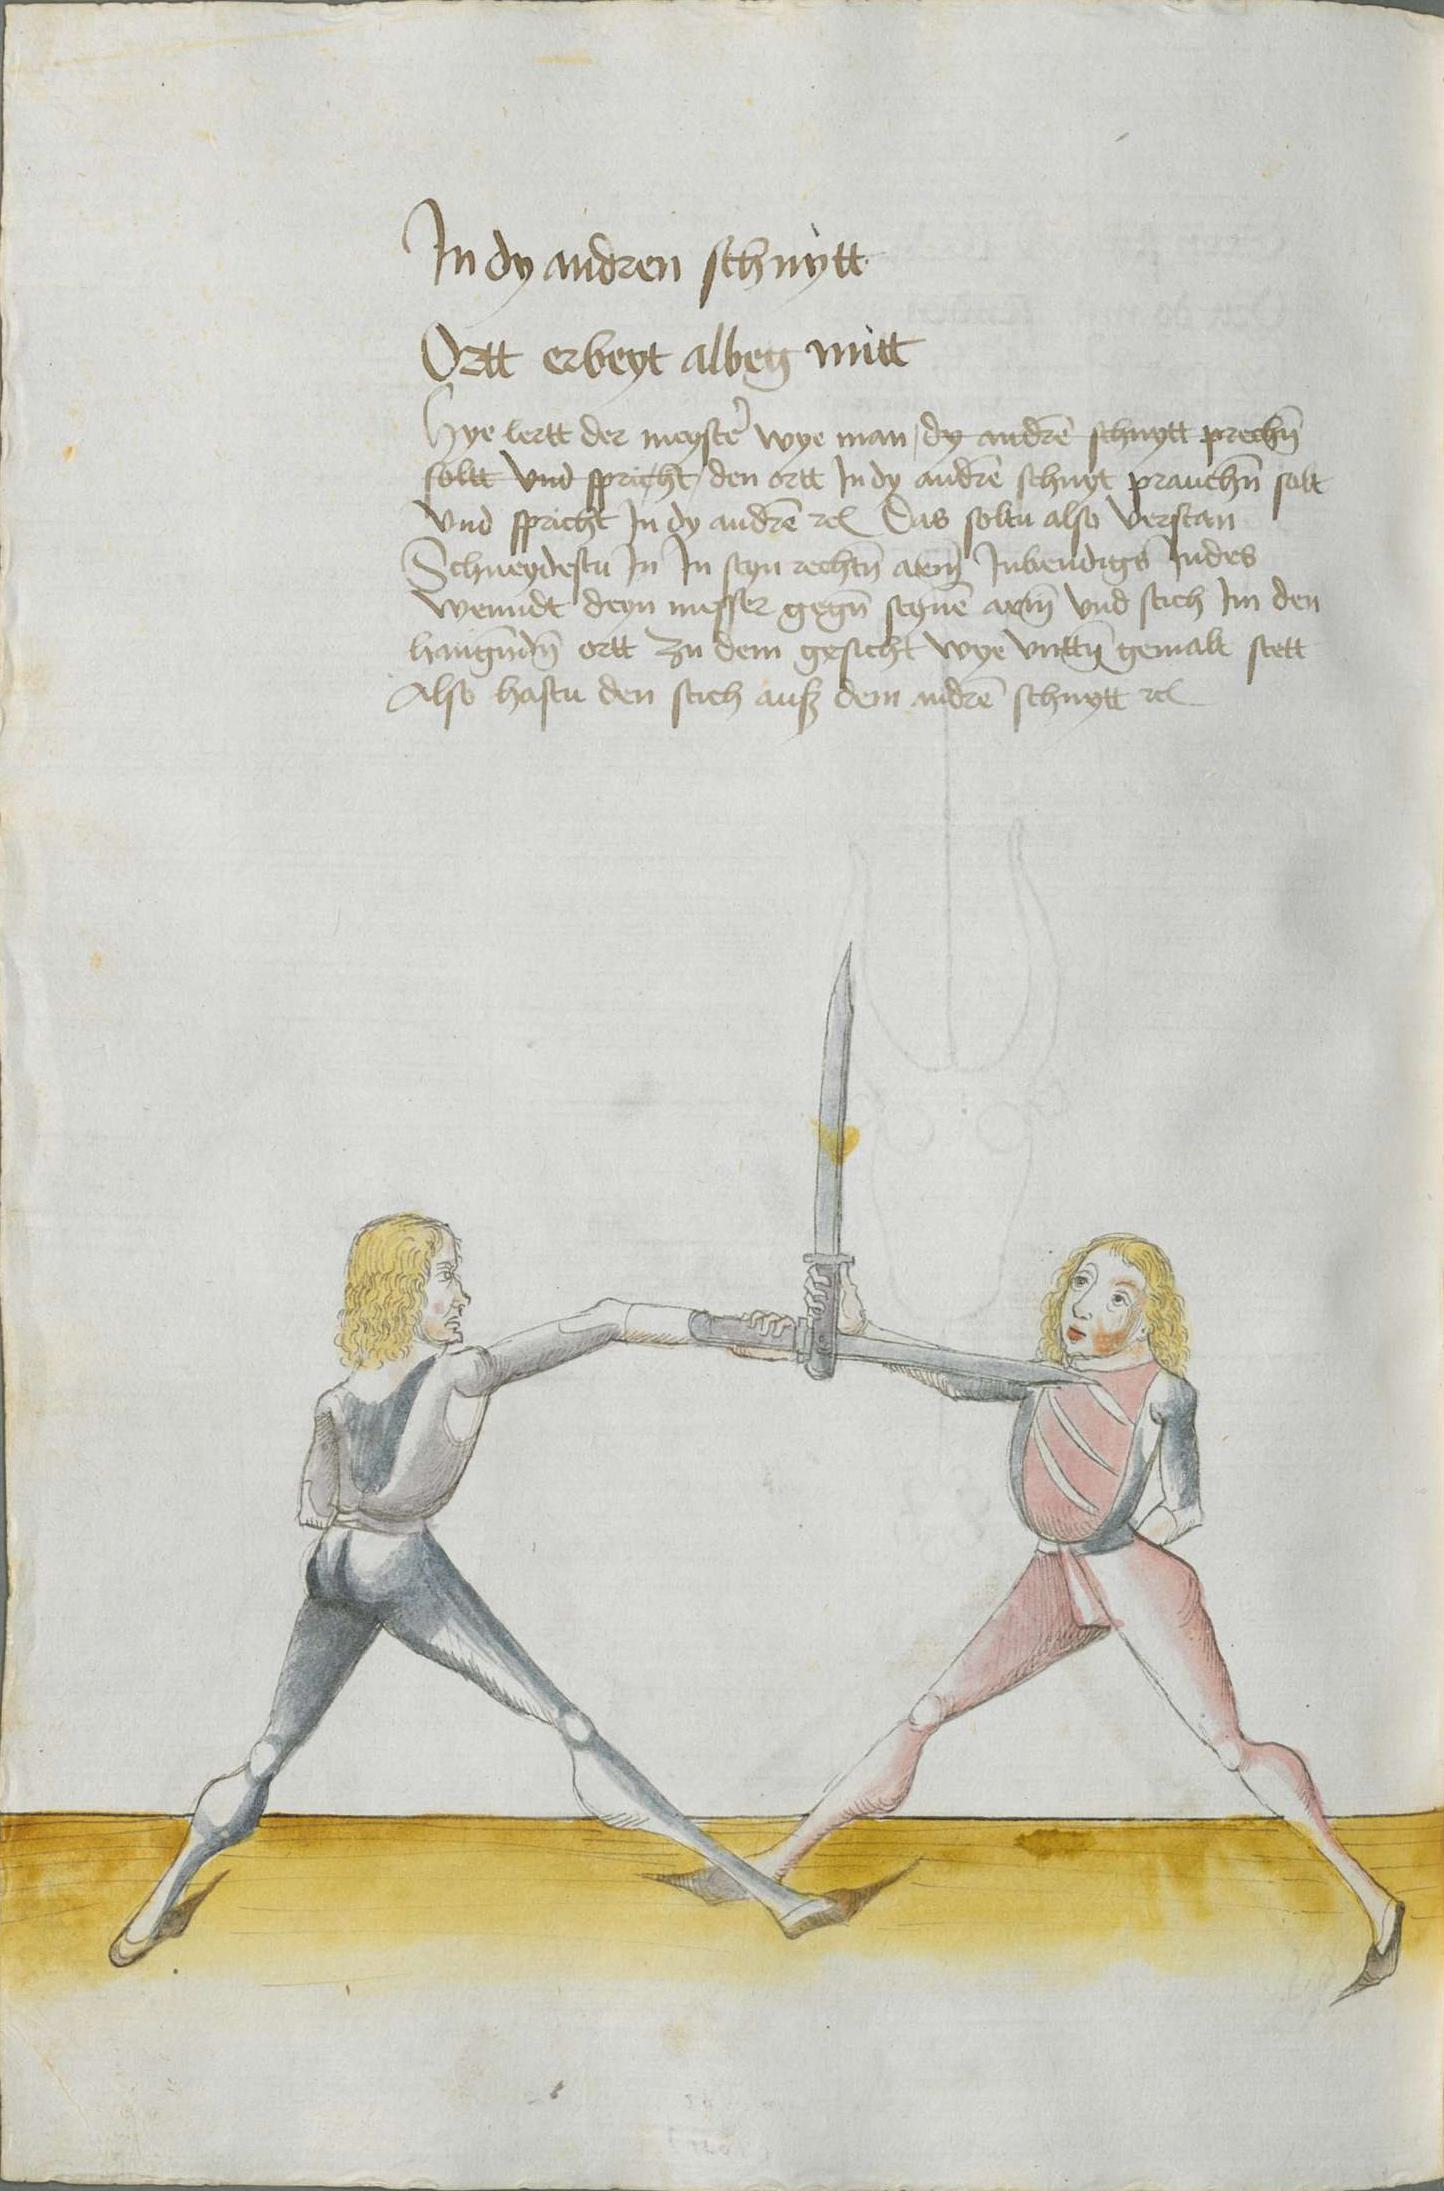 In dy andren schnytt
Ortt erbeyt albeg mitt
Hye lertt der meyster̄ wye man dy andrē schnytt prechn̄
soltt vnd spricht den ortt In dy andrē schnyt prauchn̄ solt
Vnd spricht In dy andrē rc̄ Das soltu also verstan
Schneydestu In In seyn rechtn̄ arm̄ Inbendigs Indes
wenndt deyn messer gegn̄ seynē arm̄ vnd stich Im den
hangn̄dn̄ ortt zu dem gesicht wye vnttn̄ gemalt stett
Also hastu den stich auß dem andrē schnytt rc̄